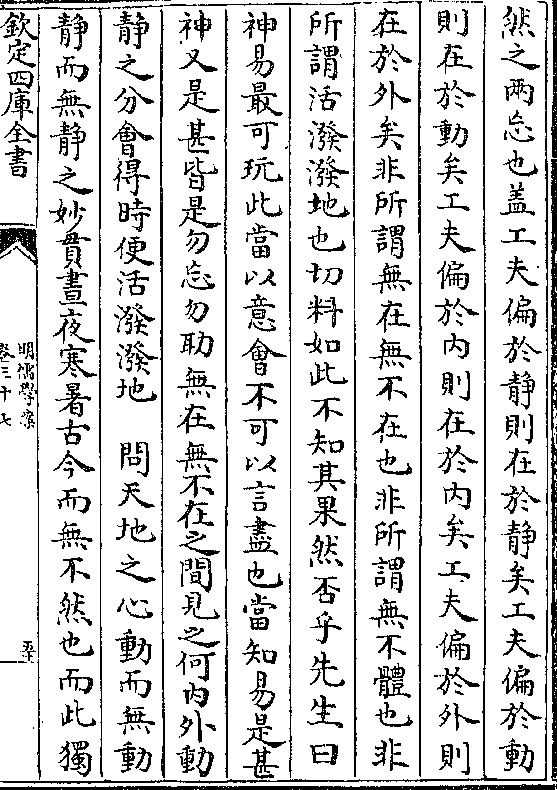 然之两忘也盖工夫偏於静則在於静矣工夫偏於動
則在於動矣工夫偏於内則在於内矣工夫偏於外則
在於外矣非所謂無在無不在也非所謂無不體也非
所謂活潑潑地也切料如此不知其果然否乎先生曰
神易最可玩此當以意會不可以言盡也當知易是甚
神又是甚皆是勿忘勿助無在無不在之間見之何内外動
静之分會得時便活潑潑地　問天地之心動而無動
静而無静之妙貫晝夜寒暑古今而無不然也而此獨
欽定四庫全書
明儒學案
卷三十七